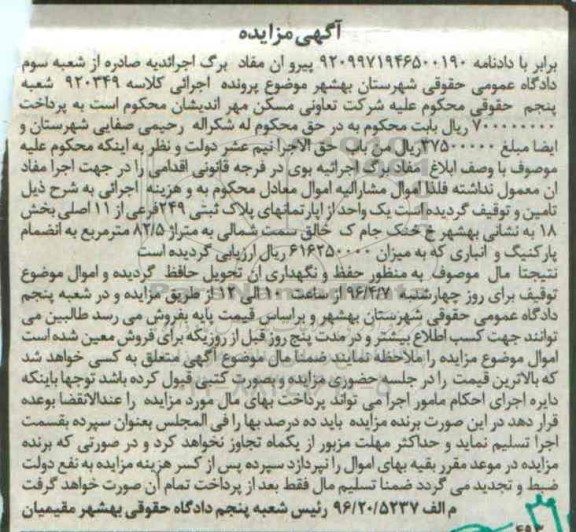 آگهی مزایده
برابر با دادنامه ۹۲۰۹۹۷۱۹۴۶۵۰۰۱۹۰ پیرو ان مفاد برگ اجرائدیه صادره از شعبه سوم
دادگاه عمومی حقوقی شهرستان بهشهر موضوع پرونده اجرائی کلاسه ۹۲۰۳۴۹ شعبه
پنجم حقوقی محکوم علیه شرکت تعاونی مسکن مهر اندیشان محکوم است به پرداخت
۷۰۰۰۰۰۰۰۰ ریال بابت محکوم به در حق محکوم له شکراله رحیمی صفایی شهرستان و
ایضا مبلغ ۳۷۵۰۰۰۰۰ریال من باب حق الاجرا نیم عشر دولت و نظر به اینکه محکوم علیه
موصوف با وصف ابلاغ مفاد برگ اجرائیه بوی در فرجه قانونی اقدامی را در جهت اجرا مفاد
ان معمول نداشته فلذا اموال مشارالیه اموال معادل محکوم به و هزینه اجرائی به شرح ذیل
تامین و توقیف گردیده است یک واحد از اپارتمانهای پلاک ثبتی ۲۴۹فرعی از ۱۱ اصلی بخش
۱۸ به نشانی بهشهر خ خمک جام ک خالق سمت شمالی به متراژ ۸۲/۵ مترمربع به انضمام
پارکینگ و انباری که به میزان ۶۱۶۲۵۰۰۰۰ ریال ارزیابی گردیده است
نتیجتا مال موصوف به منظور حفظ و نگهداری ان تحویل حافظ گردیده و اموال موضوع
توقیف برای روز چهارشنبه ۹۶/۴/۷ از ساعت ۱۰ الی ۱۲ از طریق مزایده و در شعبه پنجم
دادگاه عمومی حقوقی شهرستان بهشهر و براساس قیمت پایه بفروش می رسد طالبین می
توانند جهت کسب اطلاع بیشتر و در مدت پنج روز قبل از روزیکه برای فروش معین شده است
اموال موضوع مزایده را ملاحظه نمایند ضمنا مال موضوع آگهی متعلق به کسی خواهد شد
که بالاترین قیمت را در جلسه حضوری مزایده وبصورت کتبی قبول کرده باشد توجها باینکه
دایره اجرای احکام مامور اجرا می تواند پرداخت بهای مال مورد مزایده را عندالاقتضا بوعده
قرار دهد در این صورت برنده مزایده باید ده درصد بها را فی المجلس بعنوان سپرده بقسمت
اجرا تسلیم نماید و حداکثر مهلت مزبور از یکماه تجاوز نخواهد کرد و در صورتی که برنده
مزایده در موعد مقرر بقیه بهای اموال را نپردازد سپرده پس از کسر هزینه مزایده به نفع دولت
ضبط و تجدید می گردد ضمنا تسلیم مال فقط بعد از پرداخت تمام آن صورت خواهد گرفت
م الف ۹۶/۲۰/۵۲۳۷ رئیس شعبه پنجم دادگاه حقوقی بهشهر مقیمیان